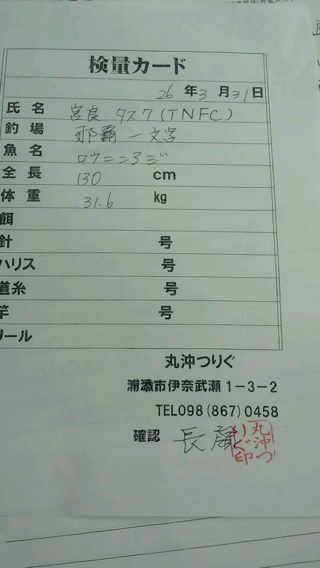 検量カード
26年3月31日
氏名 宮良 タスク(TNFC)
釣場 那覇一文字
魚名 ロウニンアジ
全長 130 cm
体重 31.6 kg
餌
針 号
ハリス 号
道糸 号
竿 号
リール
丸沖つりぐ
浦添市伊奈武瀬1-3-2
TEL098(867)0458
確認 長嶺
丸沖つりぐ印